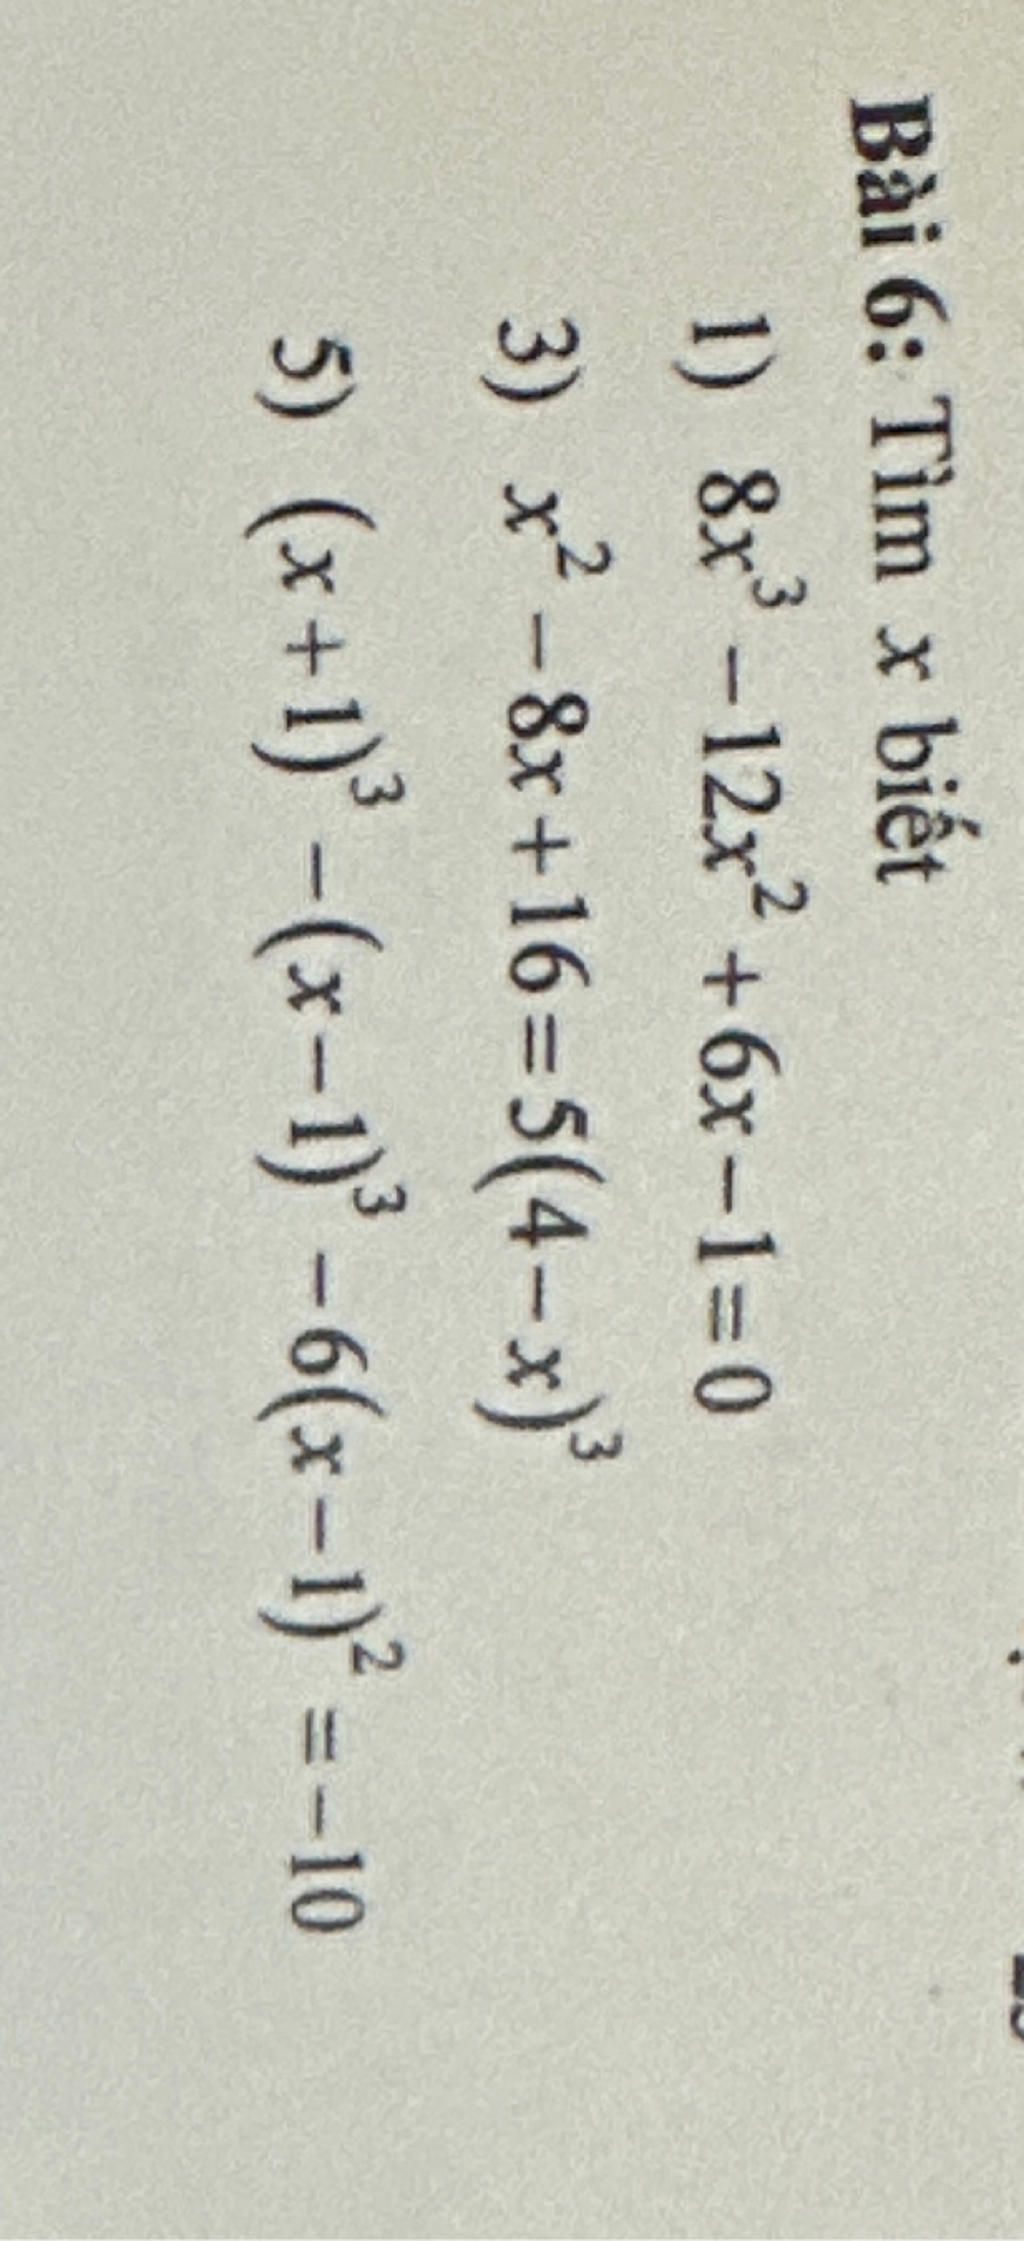 Bài 6: Tìm x biết
1) 8x³ − 12x² + 6x − 1 = 0
3) x² − 8x + 16 = 5(4 − x)³
5) (x + 1)³ − (x − 1)³ − 6(x − 1)² = −10